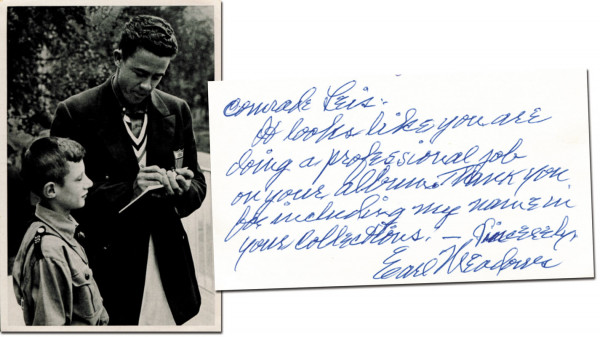 Comrade Leis:
It looks like you are
doing a professional job
on your album. Thank you
for including my name in
your collections. — Sincerely,
Earl Meadows